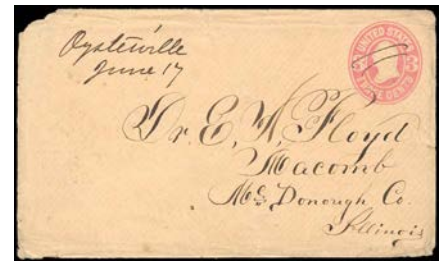 Oysterville
June 17
UNITED STATES
3 3
THREE CENTS
Dr. E. W. Floyd
Macomb
Mc Donough Co.
Illinois